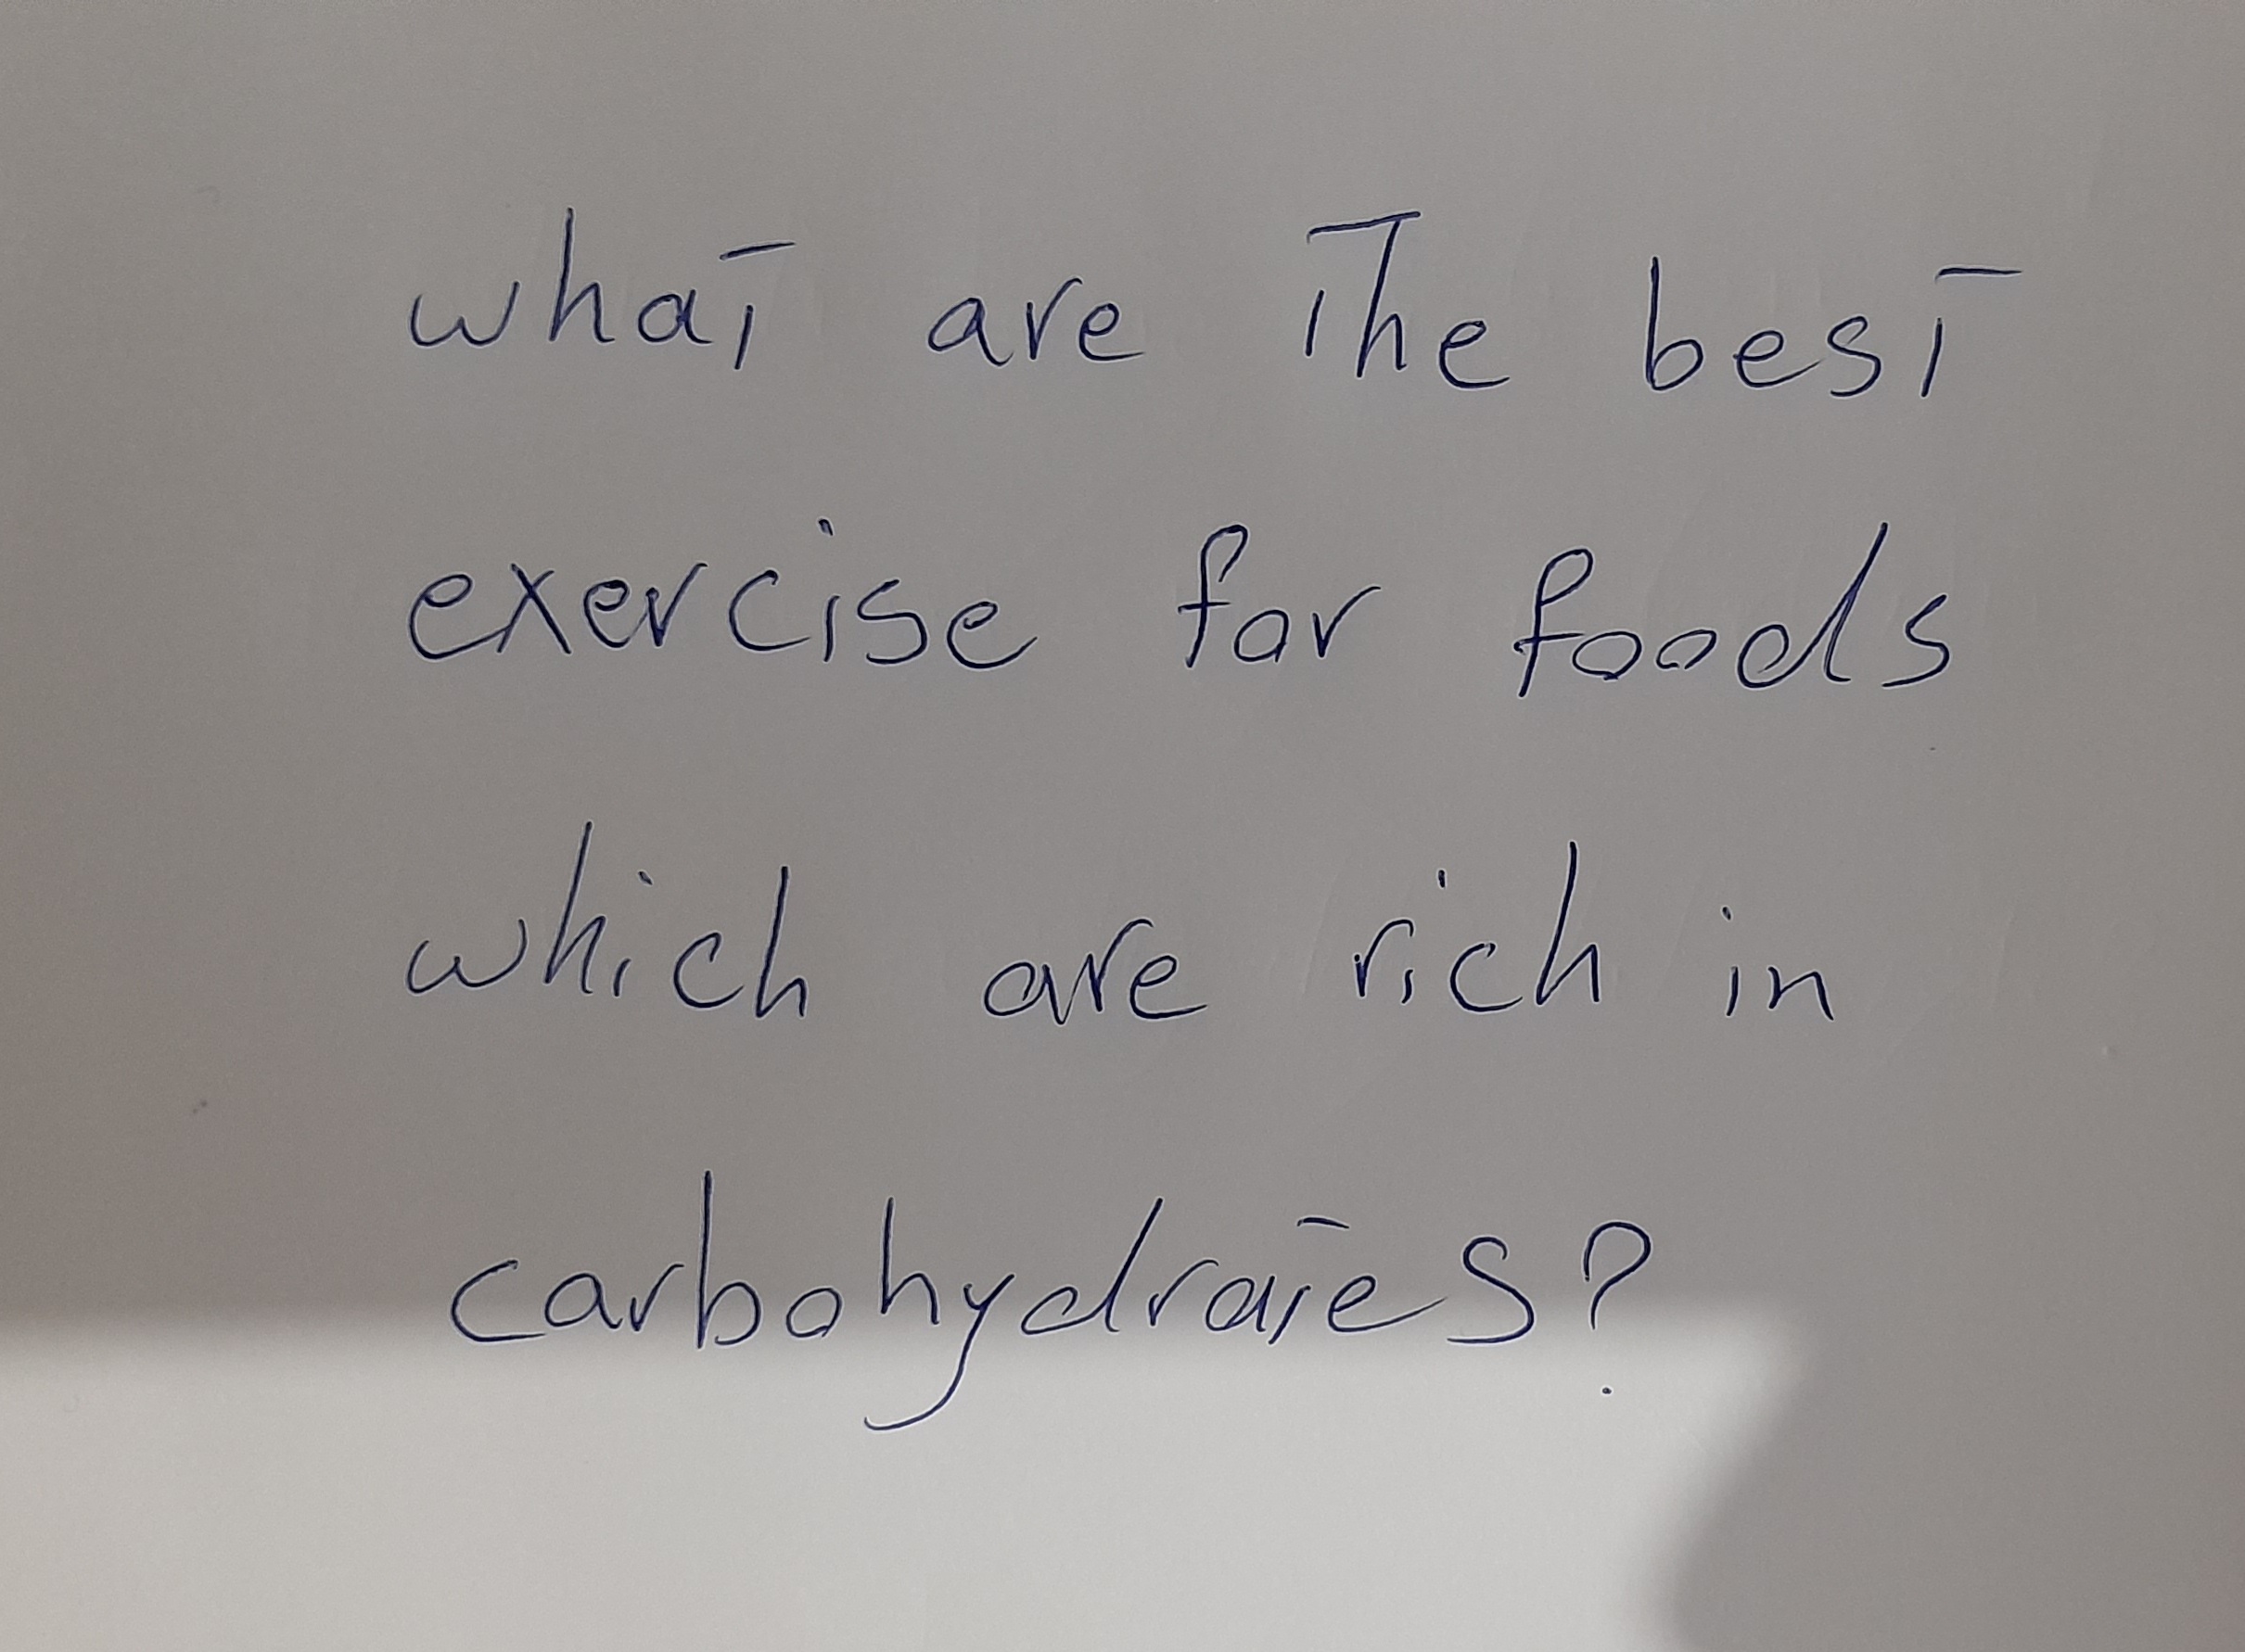 what are the best
exercise for foods
which are rich in
carbohydrates?